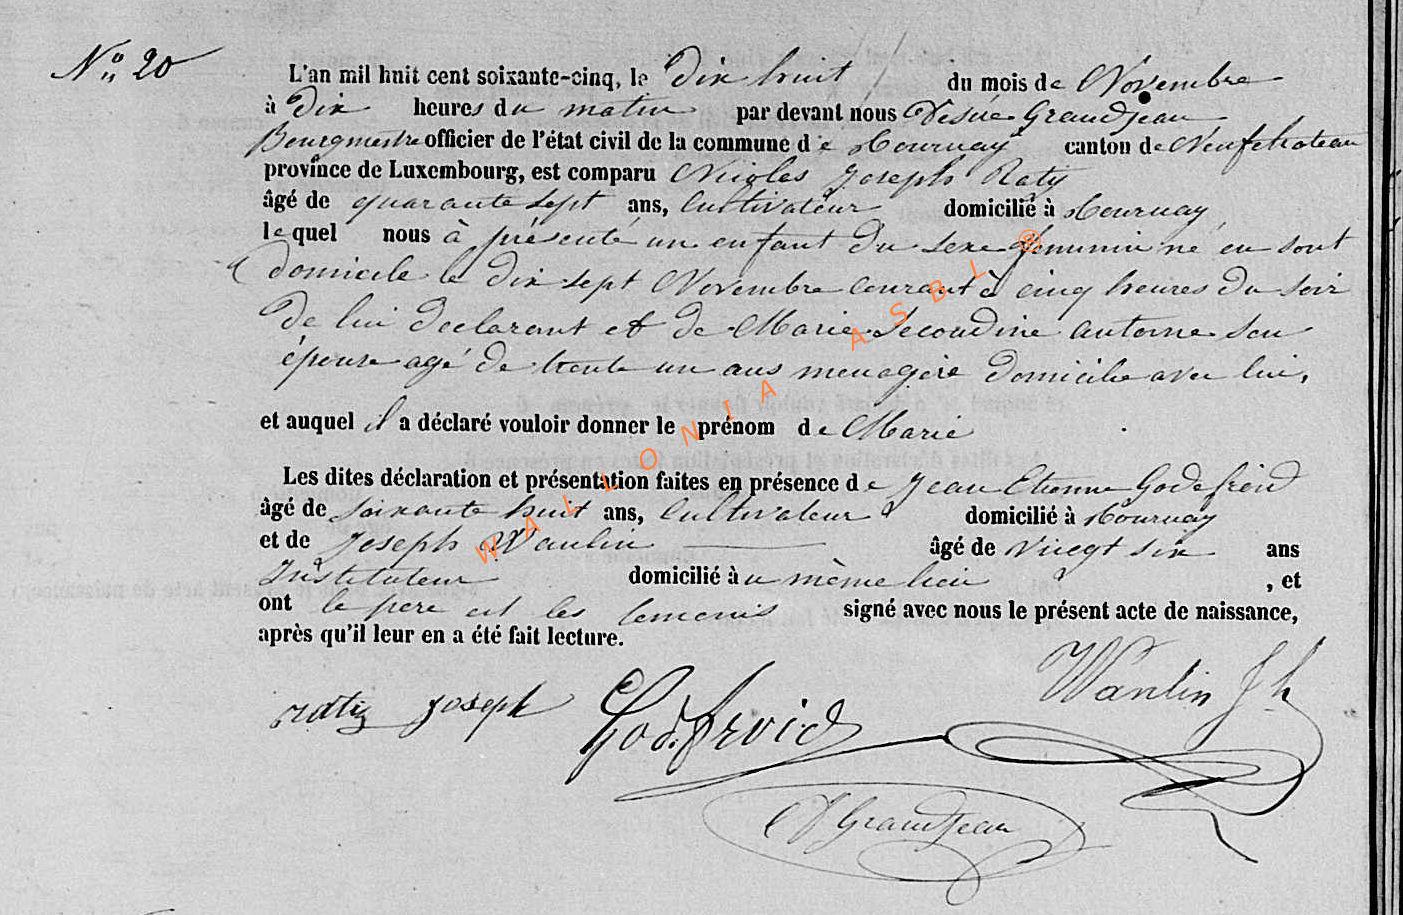 N° 20
L'an mil huit cent soixante-cinq, le Dix huit du mois de Novembre
à Dix heures du matin par devant nous Désiré Grandjean
Bourgmestre officier de l'état civil de la commune de Tournay canton de Neufchateau
province de Luxembourg, est comparu Nicolas Joseph Raty
âgé de quarante sept ans, Cultivateur domicilié à Tournay
lequel nous à présenté un enfant du sexe feminin né en sont
domicile le dix sept Novembre courant à cinq heures du soir
de lui declarant et de Marie Secondine antoine son
épouse agé de trente un ans menagère domicilie avec lui,
et auquel il a déclaré vouloir donner le prénom de Marie
Les dites déclaration et présentation faites en présence de Jean Etienne Godefroid
âgé de soixante huit ans, Cultivateur domicilié à Tournay
et de Joseph Wanlin âgé de vingt six ans
Instituteur domicilié au même lieu , et
ont le pere et les temouis signé avec nous le présent acte de naissance,
après qu'il leur en a été fait lecture.
raty joseph Godefroid Wanlin Jh
D Grandjean
WALLONIA ASBL @